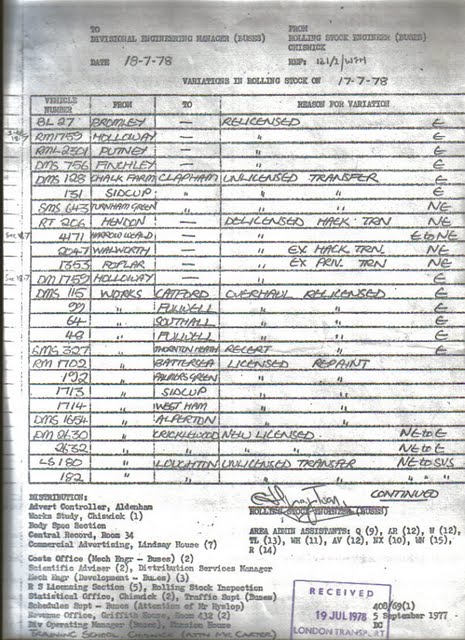 TO
DIVISIONAL ENGINEERING MANAGER (BUSES)
FROM
ROLLING STOCK ENGINEER (BUSES)
CHISWICK
DATE 18-7-78
REF: 121/1/WJH
VARIATIONS IN ROLLING STOCK ON 17-7-78
VEHICLE NUMBER FROM TO REASON FOR VARIATION
BL 27 BROMLEY — RELICENSED E
RM1759 HOLLOWAY — " E
RML 2301 PUTNEY — " E
DMS 756 FINCHLEY — " E
DMS 128 CHALK FARM CLAPHAM UNLICENSED TRANSFER E
131 SIDCUP " " " E
SMS 643 TURNHAM GREEN " " " NE
RT 206 HENDON — DELICENSED HACK. TRN NE
4171 HARROW WEALD — " E to NE
2047 WALWORTH — " EX HACK TRN. NE
1353 POPLAR — " EX PRIV. TRN NE
DM 1759 HOLLOWAY — " E
DMS 115 WORKS CATFORD OVERHAUL RELICENSED E
99 " FULWELL " " E
64 " SOUTHALL " " E
48 " FULWELL " " E
SMS 327 " THORNTON HEATH RECERT " E
RM 1702 " BATTERSEA LICENSED REPAINT
192 " PALMERS GREEN " "
1713 " SIDCUP " "
1714 " WEST HAM " "
DMS 1654 " ALPERTON " "
DM 2630 " CRICKLEWOOD NEW LICENSED NE to E
2632 " " " " NE to E
LS 180 " LOUGHTON UNLICENSED TRANSFER NE to SVS
182 " " " " "
CONTINUED
ROLLING STOCK ENGINEER (BUSES)
DISTRIBUTION:
Advert Controller, Aldenham
Works Study, Chiswick (1)
Body Spec Section
Central Record, Room 34
Commercial Advertising, Lindsay House (7)
AREA ADMIN ASSISTANTS: Q (9), AR (12), W (12),
TL (13), WH (11), AV (12), NX (10), WN (15),
R (14)
Costs Office (Mech Engr - Buses) (2)
Scientific Adviser (2), Distribution Services Manager
Mech Engr (Development - Buses) (3)
R S Licensing Section (5), Rolling Stock Inspection
Statistical Office, Chiswick (2), Traffic Supt (Buses)
Schedules Supt - Buses (Attention of Mr Hyslop)
Revenue Office, Griffith House, Room 432 (2)
Div Operating Manager (Buses), Mansion House
TRAINING SCHOOL CHISWICK (ATTN MR CARTER)
RECEIVED
19 JUL 1978
LONDON TRANSPORT
408/69(1)
5 September 1977